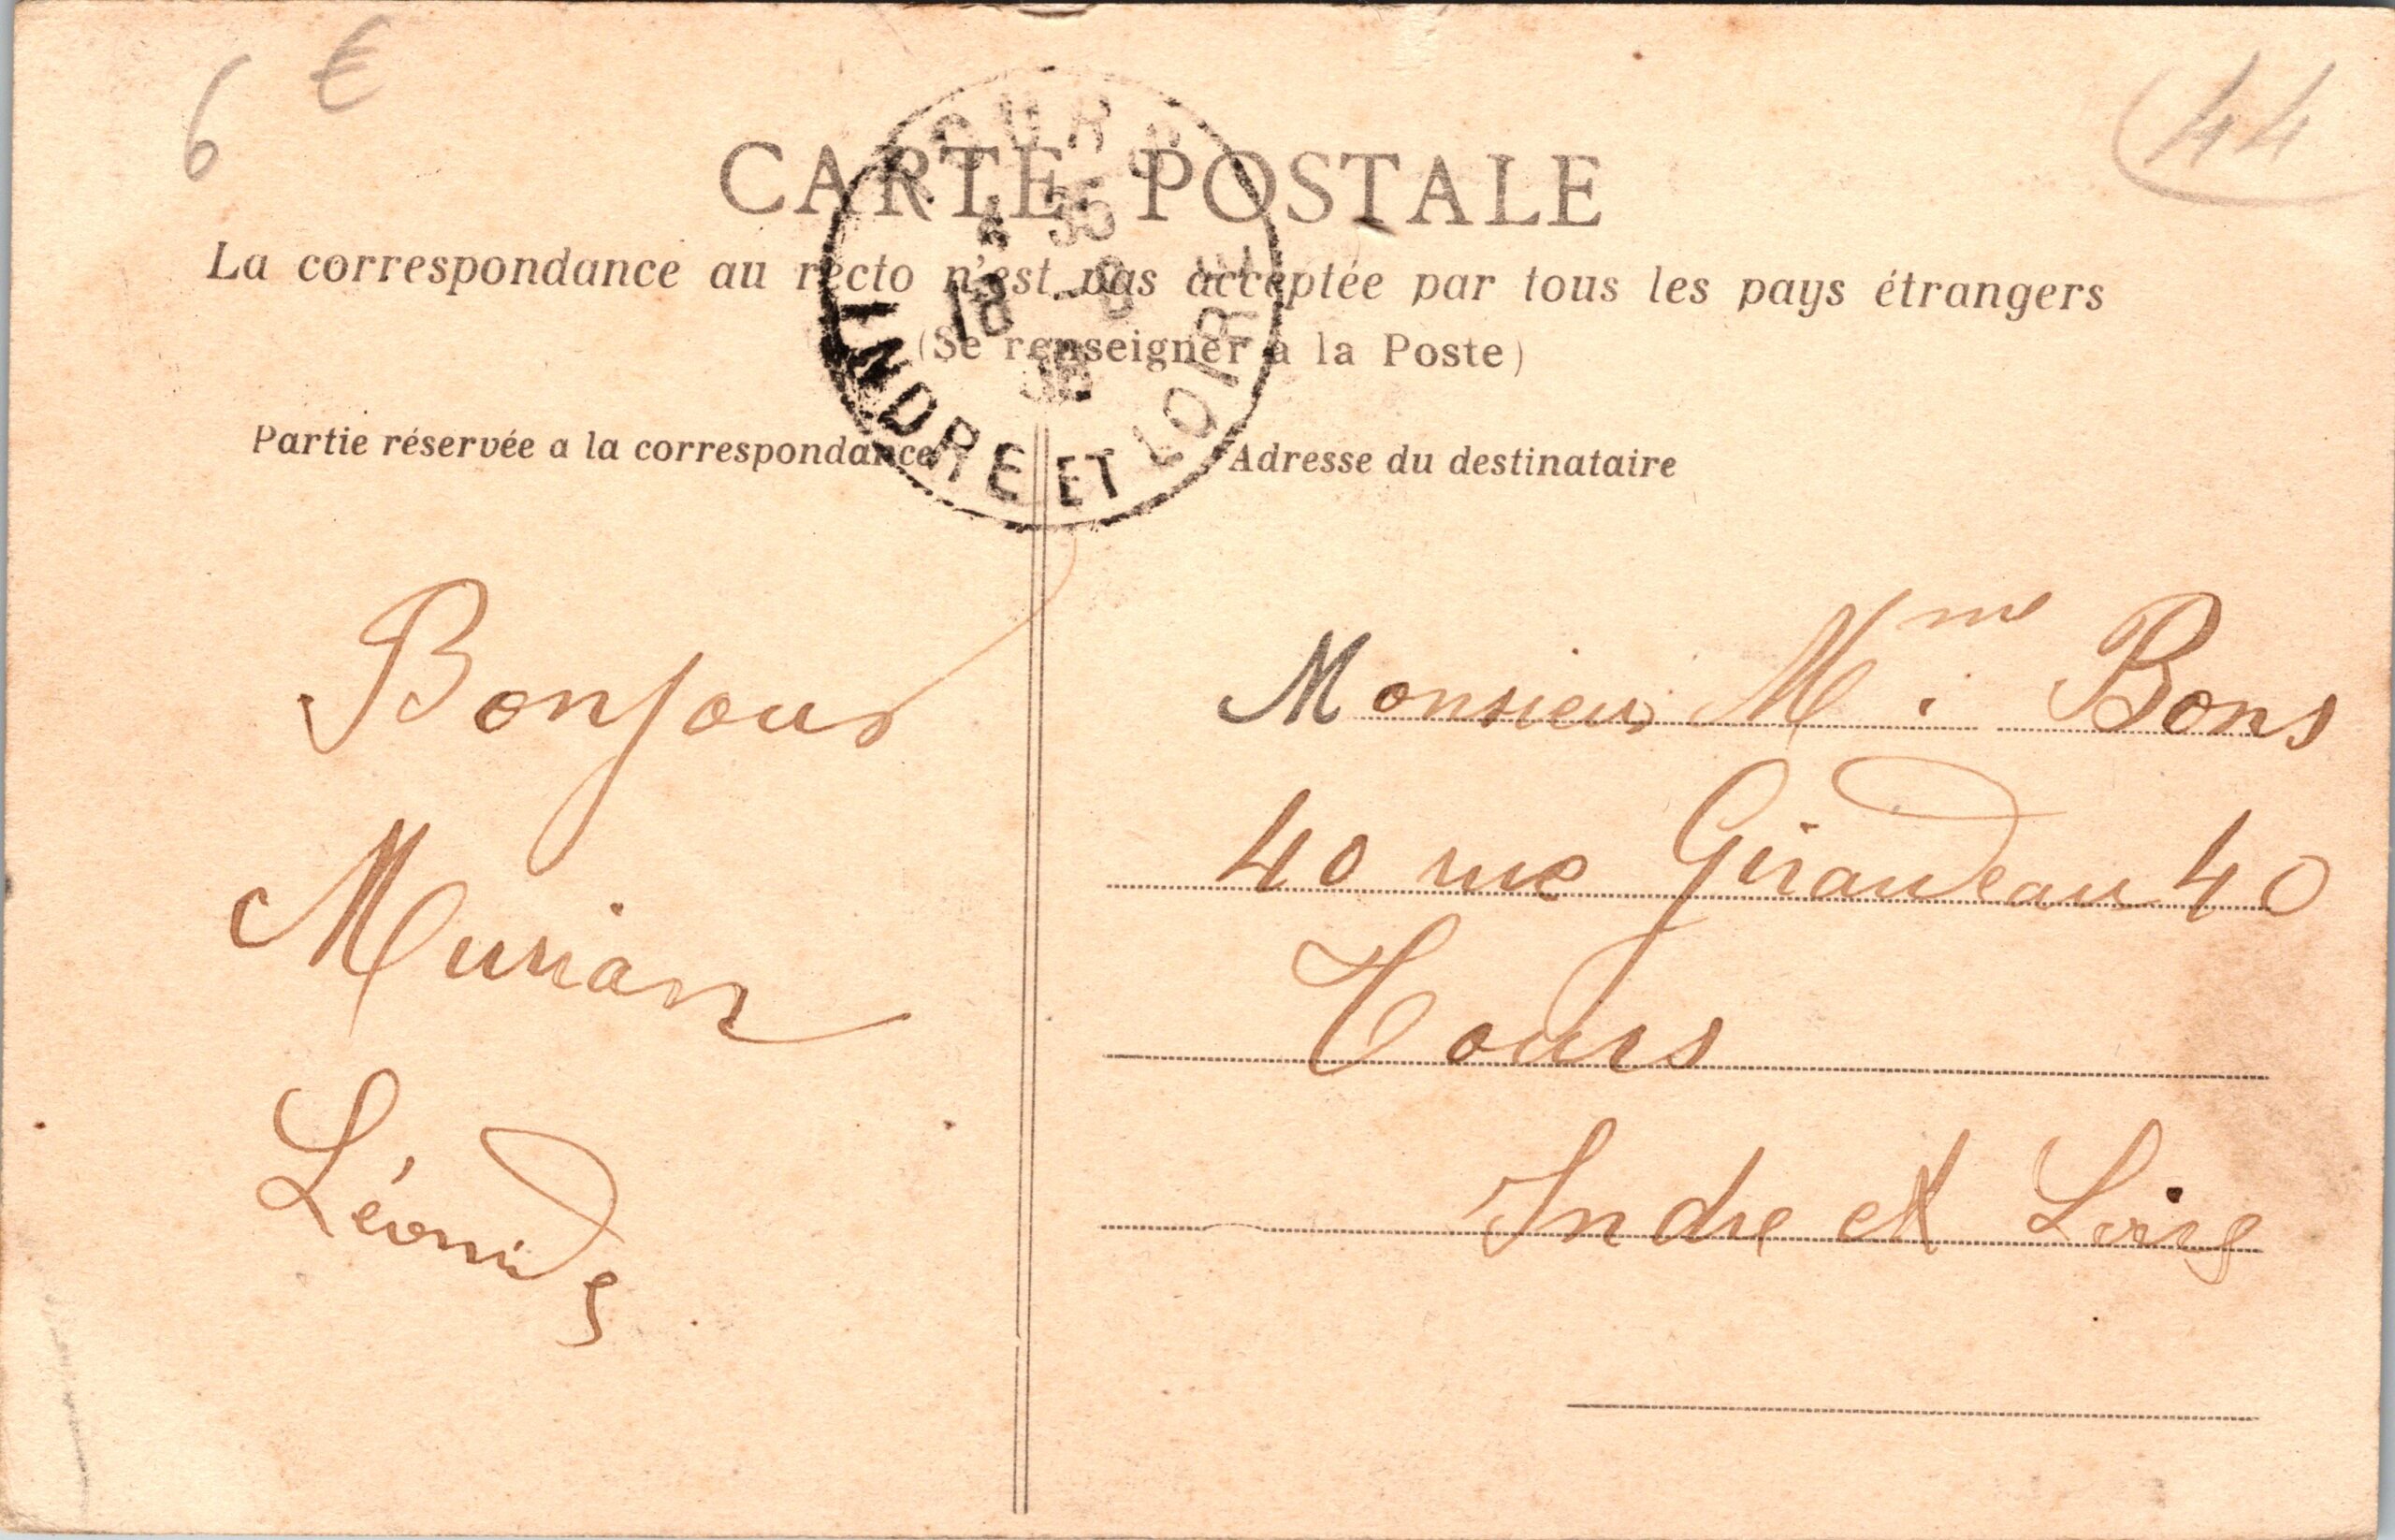 6 €
44
CARTE POSTALE
TOURS
4 35
18 -8
INDRE ET LOIRE
La correspondance au recto n'est pas acceptée par tous les pays étrangers
(Se renseigner à la Poste)
Partie réservée a la correspondance
Adresse du destinataire
Bonjour
Murian
Léonid
Monsieur Mme Bons
40 rue Giraudeau 40
Tours
Indre et Loire